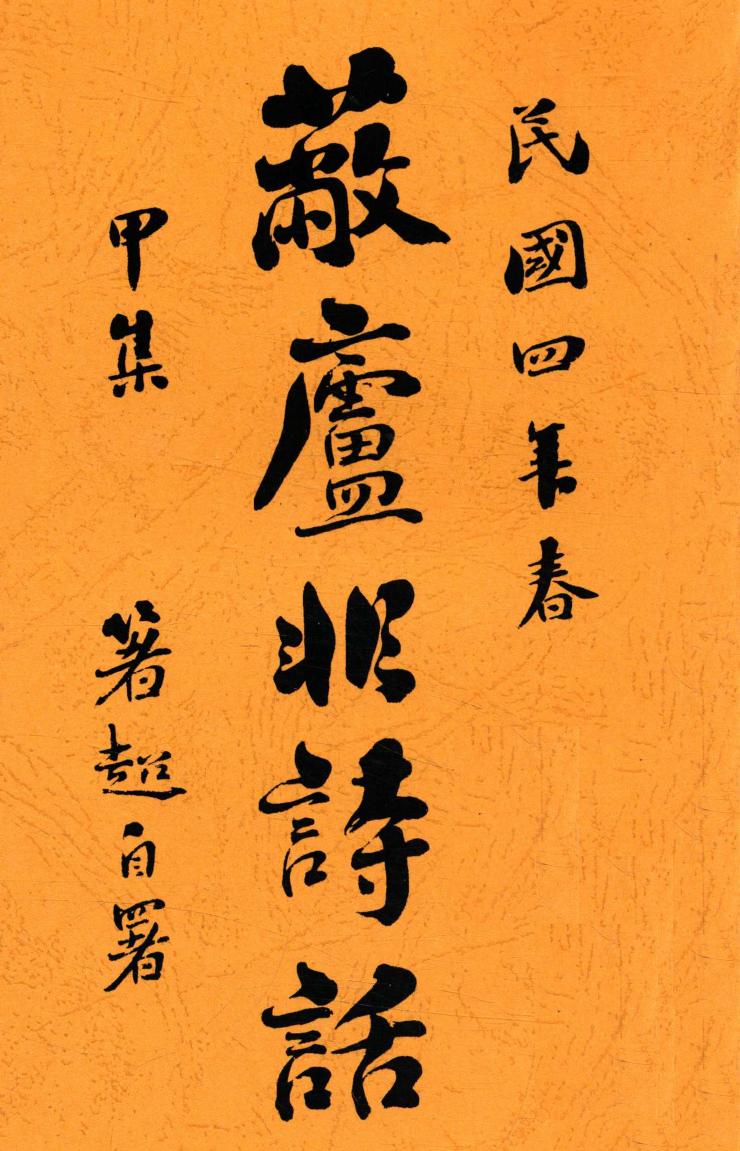 民國四年春
蔽廬非詩話
甲集
箸超自署